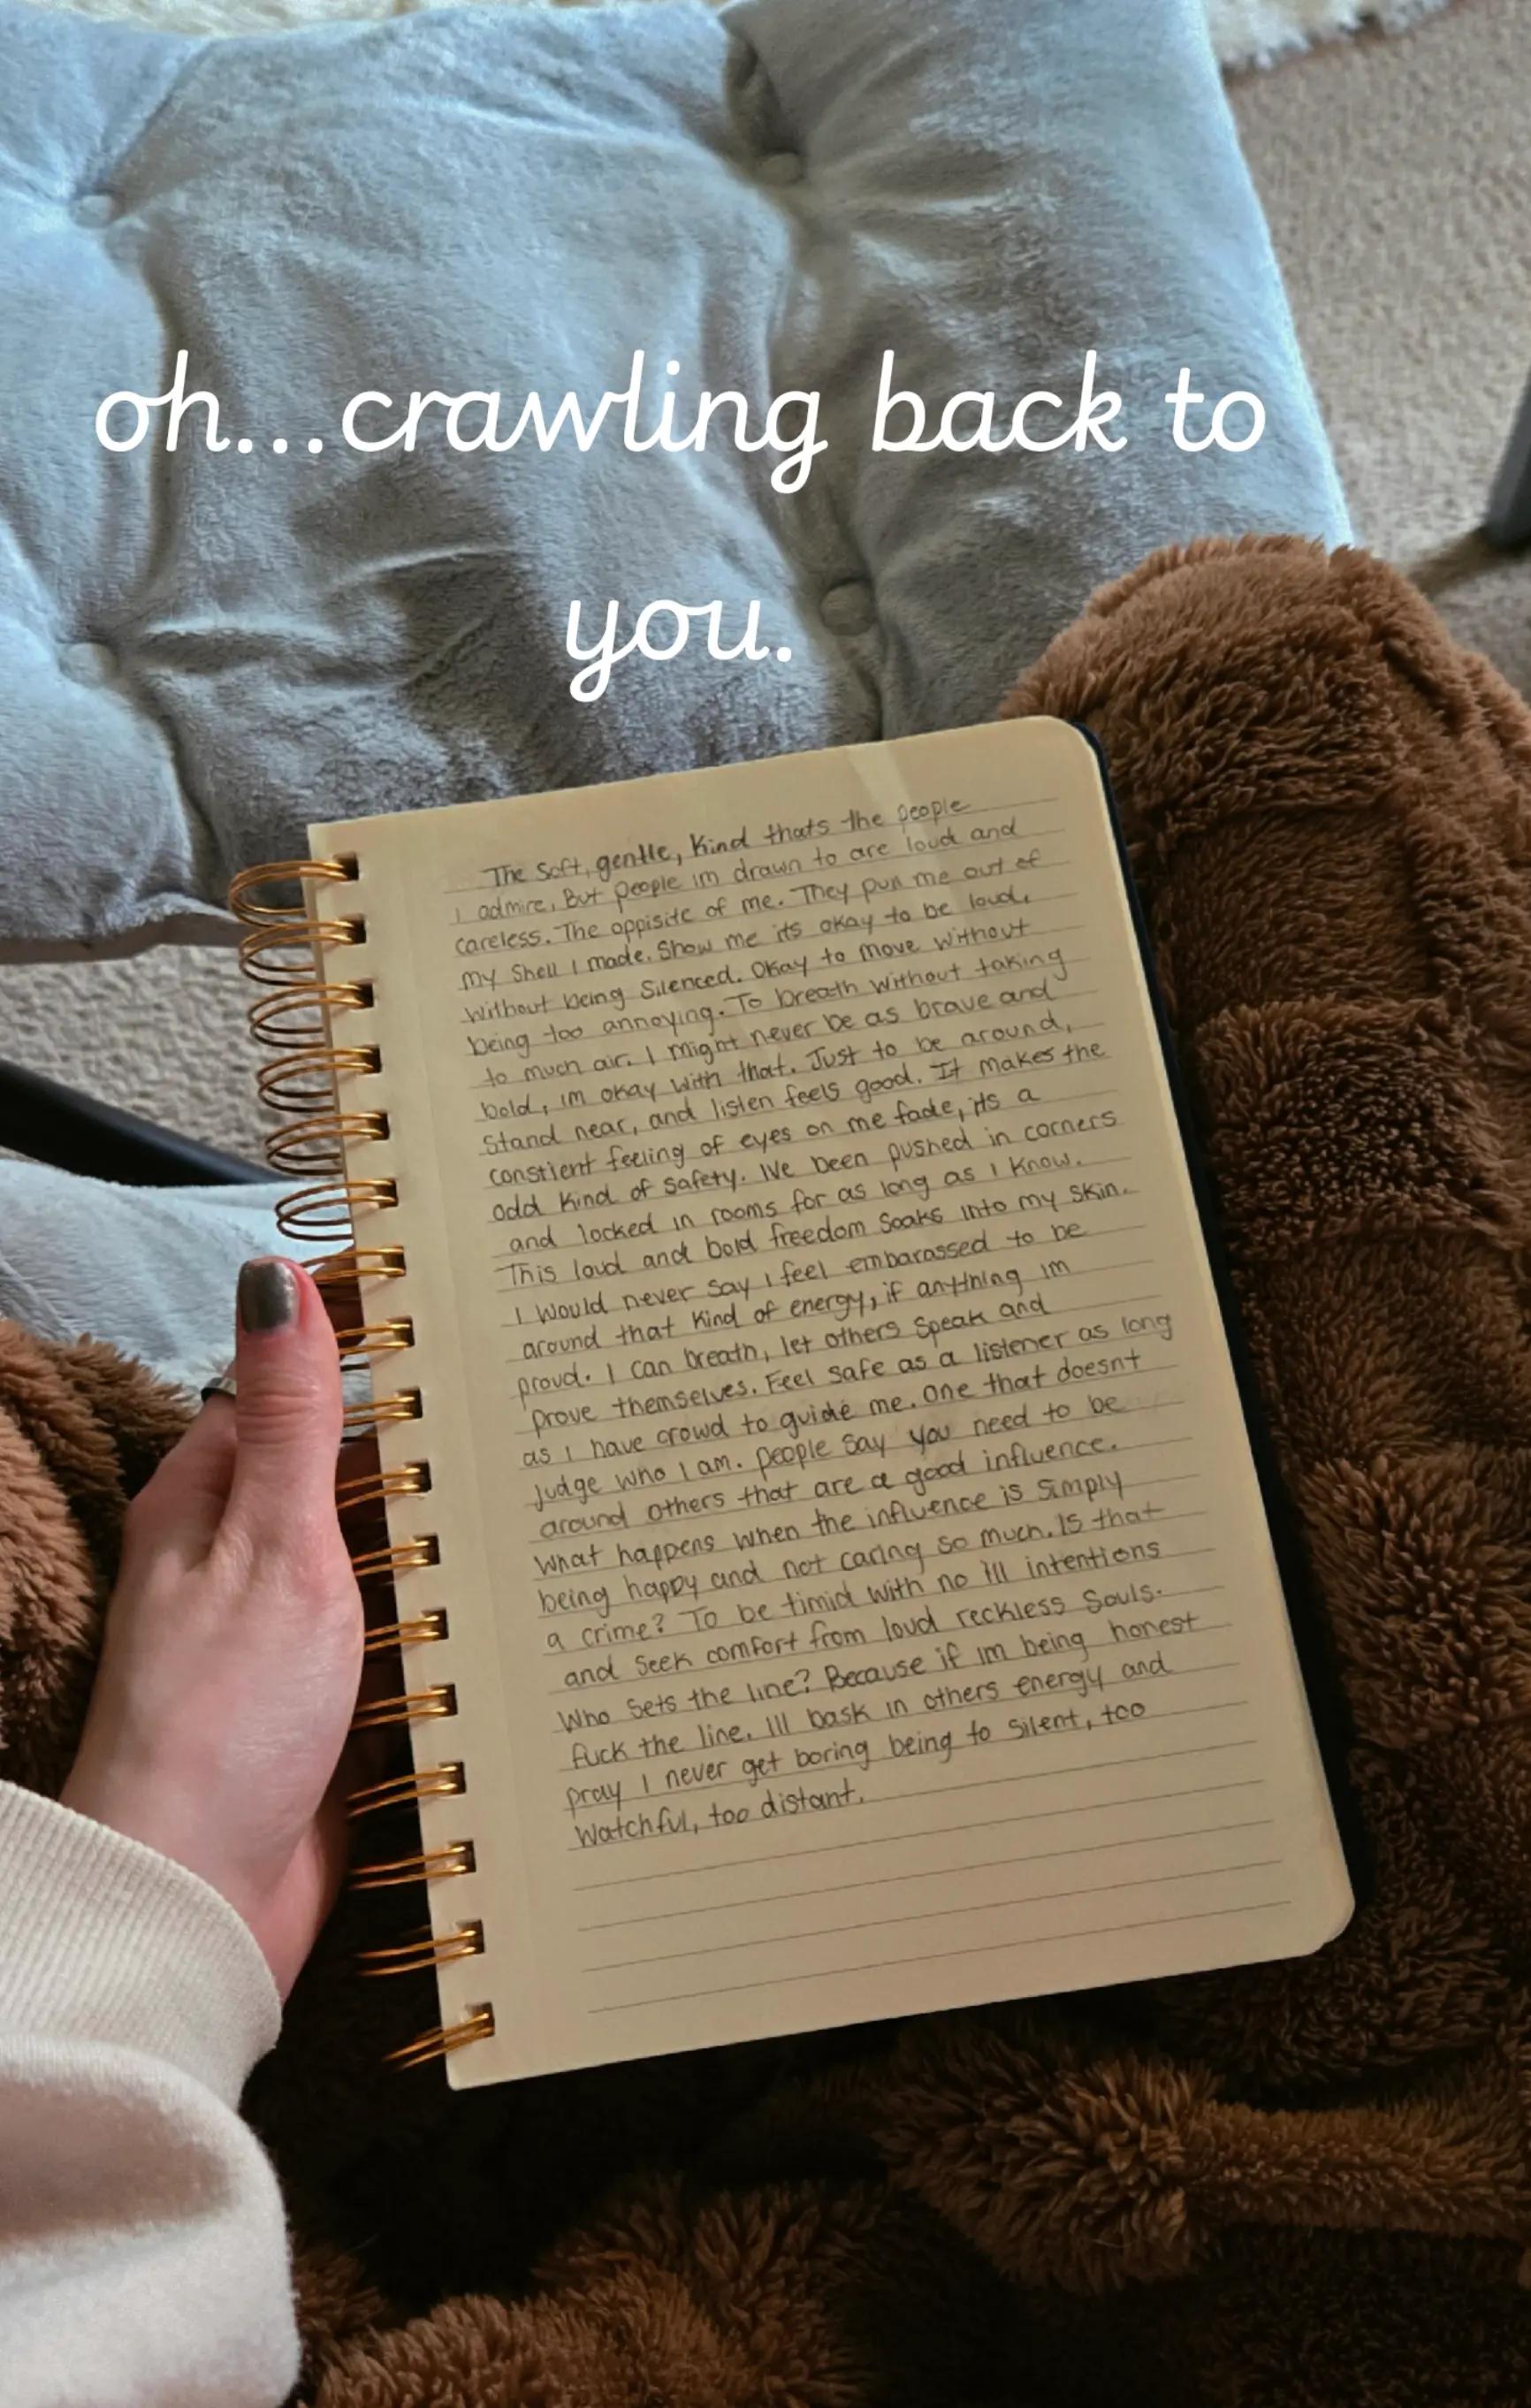 oh...crawling back to
you.
The soft, gentle, kind thats the people
I admire. But people im drawn to are loud and
careless. The oppisite of me. They pull me out of
my shell I made. Show me its okay to be loud,
without being silenced. Okay to move without
being too annoying. To breath without taking
to much air. I might never be as brave and
bold, im okay with that. Just to be around,
stand near, and listen feels good. It makes the
constient feeling of eyes on me fade, its a
odd kind of safety. Ive been pushed in corners
and locked in rooms for as long as I know.
This loud and bold freedom soaks into my skin.
I would never say I feel embarassed to be
around that kind of energy, if anything im
proud. I can breath, let others speak and
prove themselves. Feel safe as a listener as long
as I have crowd to guide me. One that doesnt
judge who I am. People say you need to be
around others that are a good influence.
What happens when the influence is simply
being happy and not caring so much. Is that
a crime? To be timid with no ill intentions
and seek comfort from loud reckless souls.
Who sets the line? Because if im being honest
fuck the line. Ill bask in others energy and
pray I never get boring being to silent, too
watchful, too distant.